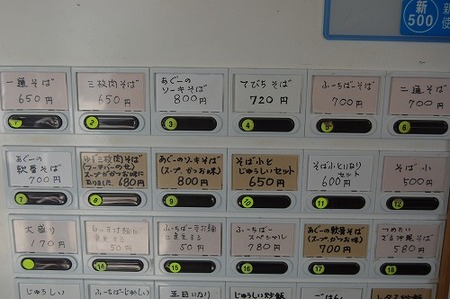 新
500
一通そば
650円
三枚肉そば
650円
あぐーの
ソーキそば
800円
てびちそば
720円
ふーちばーそば
700円
二通そば
700円
1
2
3
4
5
6
あぐーの
軟骨そば
700円
三枚肉そば
(フーチバーのせ)
680円
あぐーのソーキそば
(スープ、かつお味)
800円
そば小と
じゅうしいセット
650円
そば小といなり
セット
600円
そば小
500円
7
8
9
10
11
12
大盛り
170円
変更する
50円
ふーちばー
変更する
50円
ふーちばー
スペシャル
780円
あぐの軟骨そば
(スープかつお味)
700円
つめたい
ざる沖縄そば
580円
14
15
16
17
18
じゅうしい
ふーちばーじゅしい
五目いなり
じゅうしい炒飯
ごはん